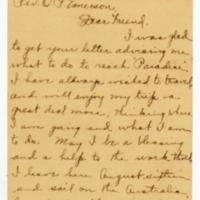 Rev. O P Emerson,
Dear Friend,
I was glad
to get your letter advising me
what to do to reach "Paradise."
I have always wished to travel
and will enjoy my trip a
great deal more, thinking where
I am going and what I am
to do. May I be a blessing
and a help to the work there.
I leave here August sixteen
and sail on the Australia